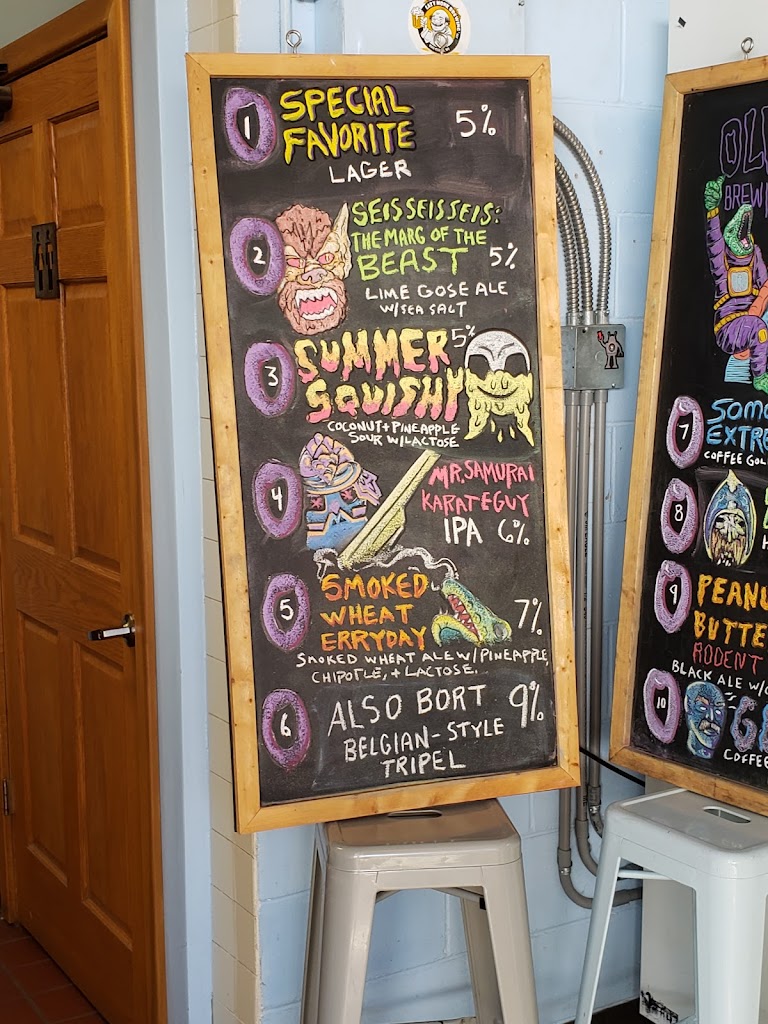 1
SPECIAL
FAVORITE
5%
LAGER
2
SEISSEISSEIS:
THE MARG OF THE
BEAST 5%
LIME GOSE ALE
W/SEA SALT
3
SUMMER 5%
SQUISHY
COCONUT + PINEAPPLE
SOUR W/LACTOSE
4
MR. SAMURAI
KARATEGUY
IPA 6%
5
SMOKED
WHEAT
ERRYDAY
7%
SMOKED WHEAT ALE W/ PINEAPPLE,
CHIPOTLE, + LACTOSE.
6
ALSO BORT 9%
BELGIAN-STYLE
TRIPEL
BREW
7
EXTRE
COFFEE GOL
8
9
PEANU
BUTTE
RODENT
BLACK ALE W/
10
COFFEE